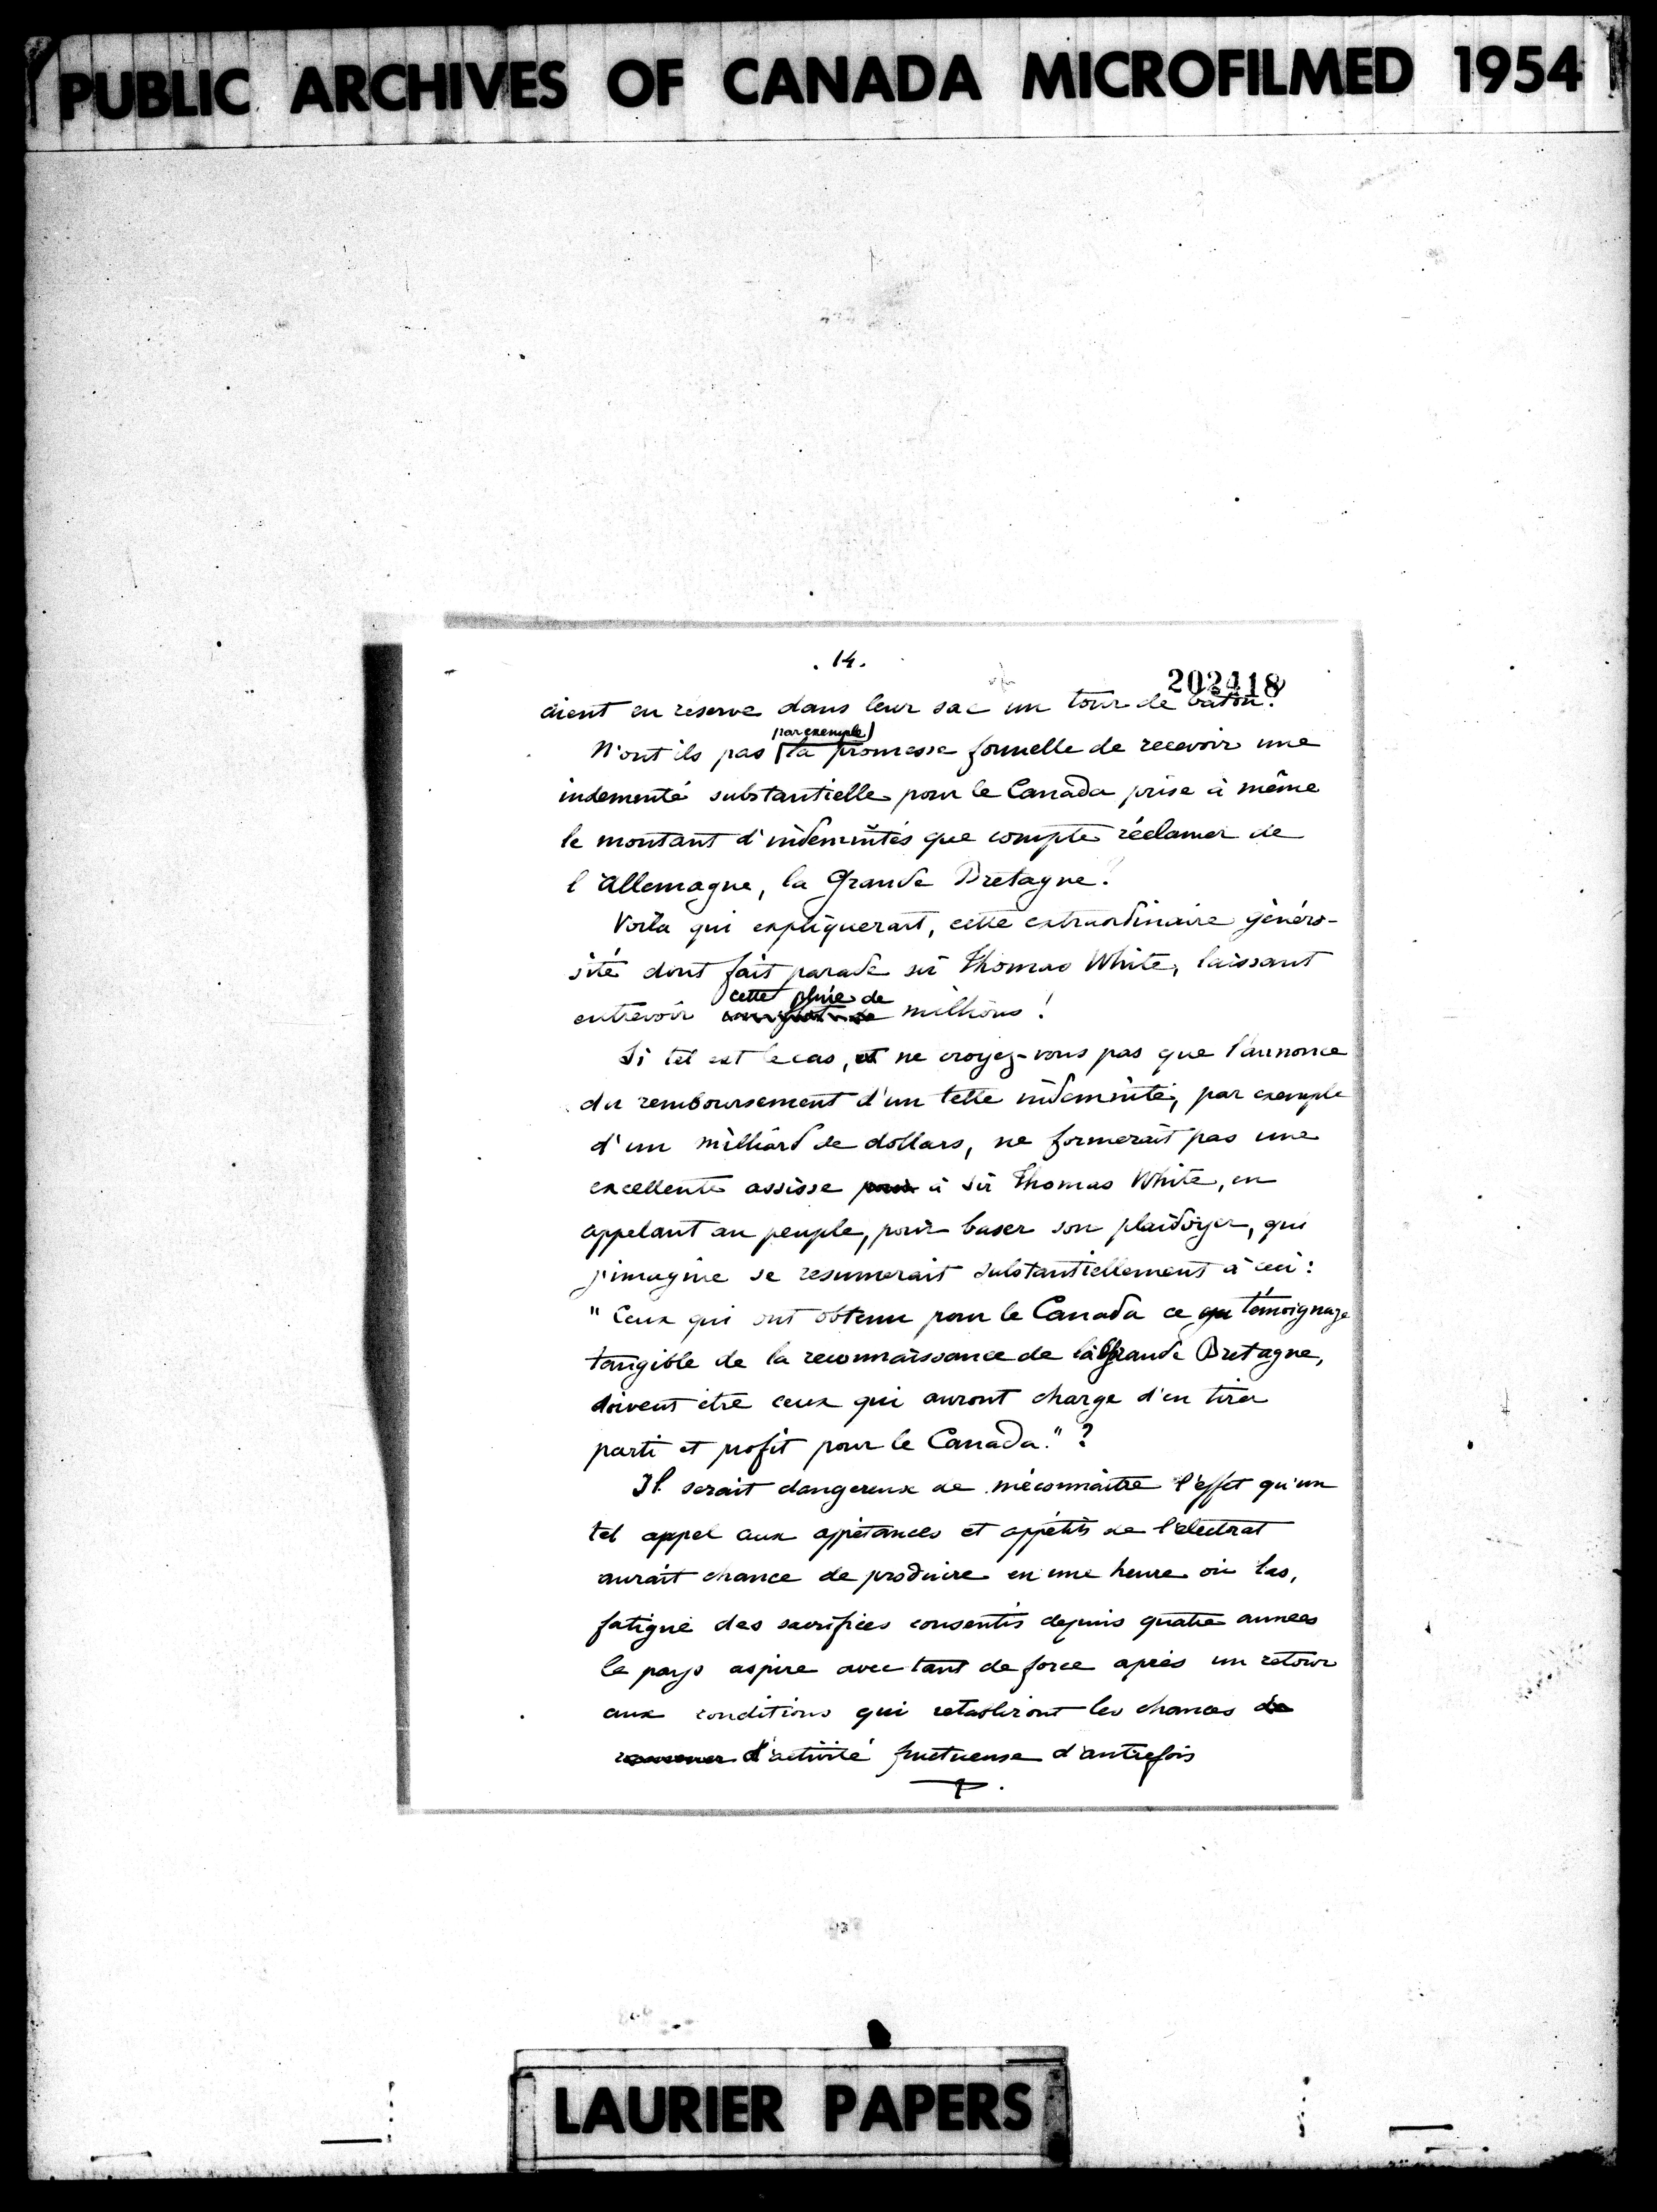 PUBLIC ARCHIVES OF CANADA MICROFILMED 1954
. 14.
202418
aient en réserve dans leur sac un tour de bâton?
par exemple
N'ont ils pas la promesse formelle de recevoir une
indemnité substantielle pour le Canada prise à même
le montant d'indemnités que compte réclamer de
l'Allemagne, la Grande Bretagne?
Voila qui expliquerait, cette extraordinaire généro-
sité dont fait parade sir Thomas White, laissant
cette pluie de
entrevoir millions!
Si tel est le cas, et ne croyez-vous pas que l'annonce
du remboursement d'un telle indemnité, par exemple
d'un milliard de dollars, ne formerait pas une
excellente assisse pour à Sir Thomas White, en
appelant au peuple, pour baser son plaidoyer, qui
j'imagine se resumerait substantiellement à ceci:
"Ceux qui ont obtenu pour le Canada ce qu témoignage
tangible de la reconnaissance de la Grande Bretagne,
doivent être ceux qui auront charge d'en tirer
parti et profit pour le Canada."?
Il serait dangereux de méconnaitre l'effet qu'un
tel appel aux appétances et appétits de l'électorat
aurait chance de produire en une heure où las,
fatigué des sacrifices consentis depuis quatre années
le pays aspire avec tant de force après un retour
aux conditions qui retabliront les chances de
d'activité fructueuse d'autrefois
LAURIER PAPERS